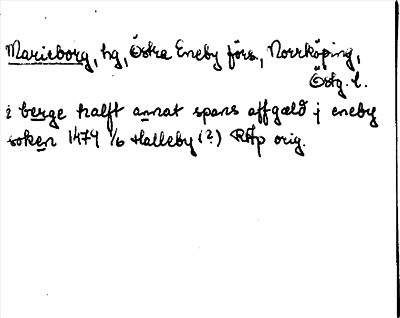 Marieborg, hg, Östra Eneby förs., Norrköping,
Östg. l.
i berge halft annat spans affgæld j eneby
soken 1479 1/6 Halleby (?) RAp orig.